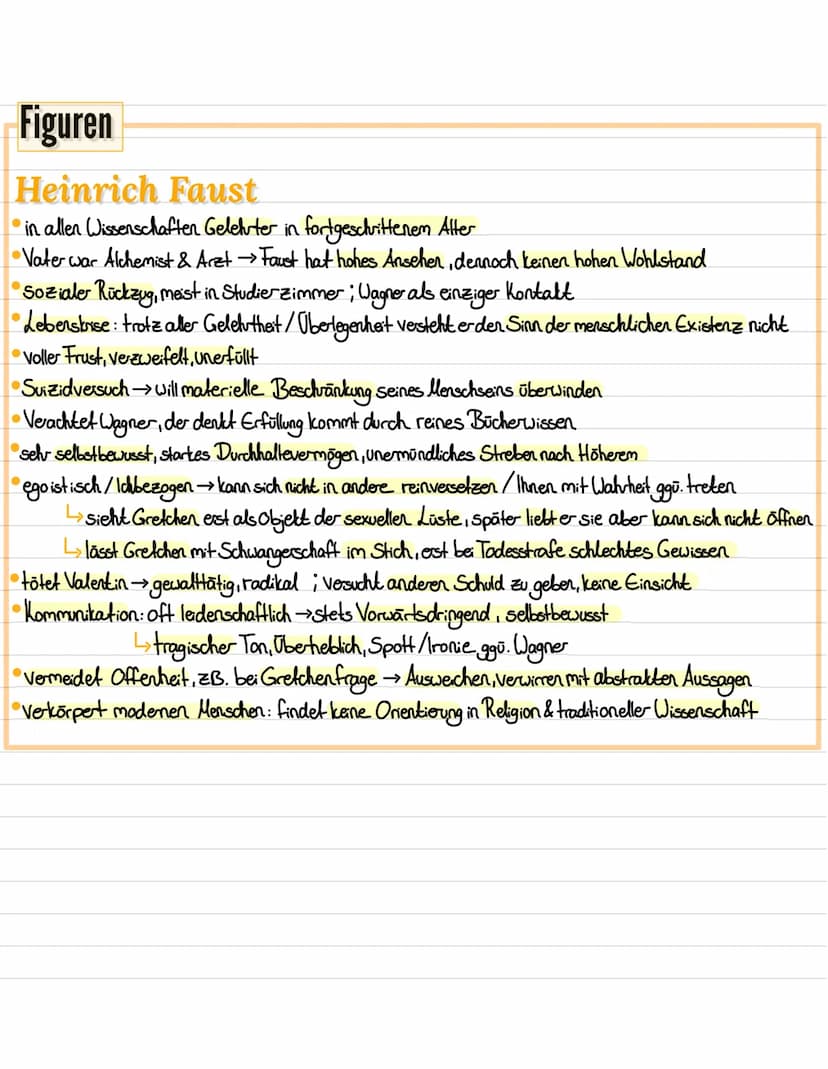 Figuren
Heinrich Faust
• in allen Wissenschaften Gelehrter in fortgeschrittenem Alter
• Vater war Alchemist & Arzt → Faust hat hohes Ansehen, dennoch keinen hohen Wohlstand
• sozialer Rückzug, meist in Studierzimmer ; Wagner als einziger Kontakt
• Lebenskrise : trotz aller Gelehrtheit / Überlegenheit versteht er den Sinn der menschlichen Existenz nicht
• voller Frust, verzweifelt, unerfüllt
• Suizidversuch → will materielle Beschränkung seines Menschseins überwinden
• Verachtet Wagner, der denkt Erfüllung kommt durch reines Bücherwissen
• sehr selbstbewusst, starkes Durchhaltevermögen, unermündliches Streben nach Höherem
• egoistisch / Ichbezogen → kann sich nicht in andere reinversetzen / Ihnen mit Wahrheit ggü. treten
↳ sieht Gretchen erst als Objekt der sexuellen Lüste, später liebt er sie aber kann sich nicht öffnen
↳ lässt Gretchen mit Schwangerschaft im Stich, erst bei Todesstrafe schlechtes Gewissen
• tötet Valentin → gewalttätig, radikal ; versucht anderen Schuld zu geben, keine Einsicht
• Kommunikation: oft leidenschaftlich → stets Vorwärtsdringend, selbstbewusst
↳ tragischer Ton, Überheblich, Spott / Ironie ggü. Wagner
• vermeidet Offenheit, zB. bei Gretchenfrage → Ausweichen, verwirren mit abstrakten Aussagen
• verkörpert modernen Menschen: findet keine Orientierung in Religion & traditioneller Wissenschaft